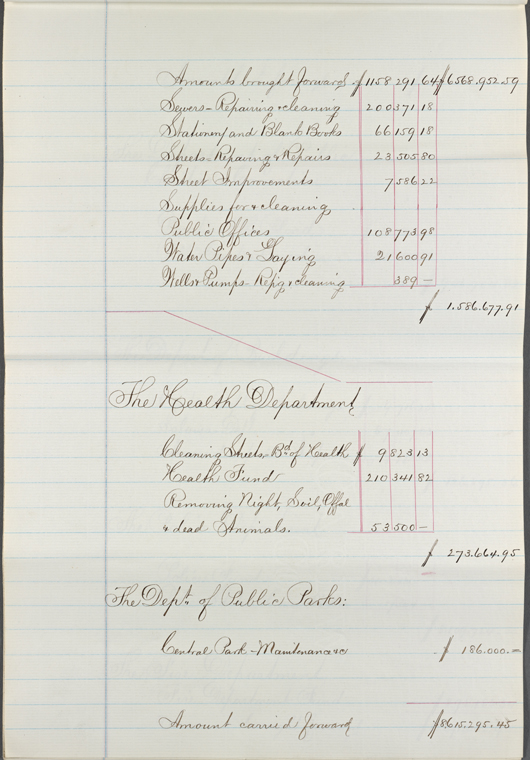 Amounts brought forward $1158 291.64 $6568.952.59
Sewers - Repairing & cleaning 200 371 18
Stationery and Blank Books 66 159 18
Streets - Repaving & Repairs 23 505 80
Street Improvements 7 586 22
Supplies for & cleaning
Public Offices 108 773 98
Water Pipes & Laying 21 600 91
Wells & Pumps - Rep'g & cleaning 389 —
$ 1.586.677.91
The Health Department
Cleaning Streets - Bd. of Health $ 9 823 13
Health Fund 210 341 82
Removing Night, Soil, Offal
& dead Animals. 53 500 —
$ 273.664.95
The Dept. of Public Parks:
Central Park - Maintenance &c $ 186.000.—
Amount carried forward $8.615.295.45